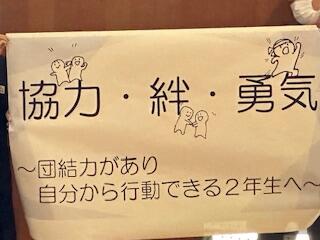 協力・絆・勇気
～団結力があり
自分から行動できる２年生へ～